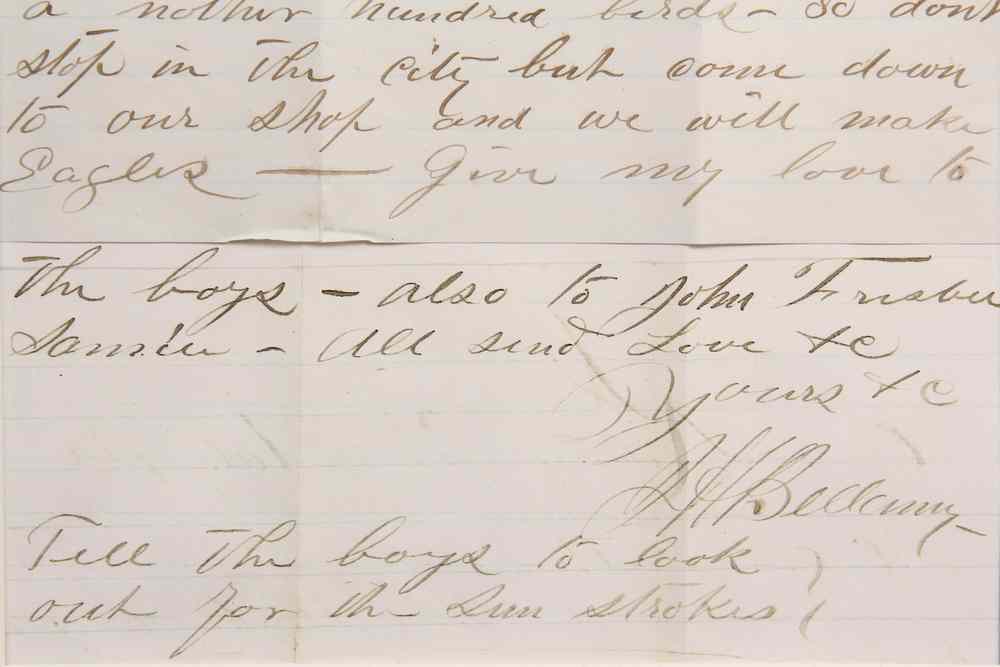 a nother hundred birds - So dont
stop in the city but come down
to our shop and we will make
Eagles — Give my love to
the boys - also to John Frisbee
Samie - All send Love &c
Yours &c
J H Bellamy
Tell the boys to look
out for the Sun strokes